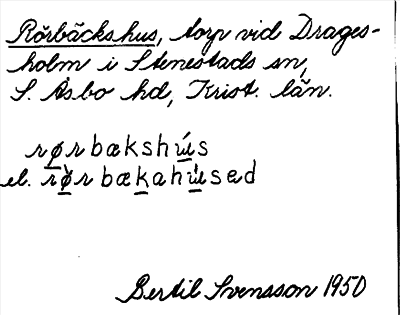 Rörbäckshus, torp vid Drages-
holm i Stenestads sn,
S. Åsbo hd, Krist. län.
rø̱rbækshú̱s
el. rø̱̀rbæḵahu̱̇sed
Bertil Svensson 1950